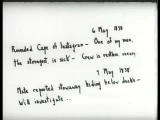 6 May 1838
Rounded Cape of Instagram - One of my men,
the strongest, is sick - Crew is restless
7 May 1838
Mate reported stowaway hiding below decks -
Will investigate...